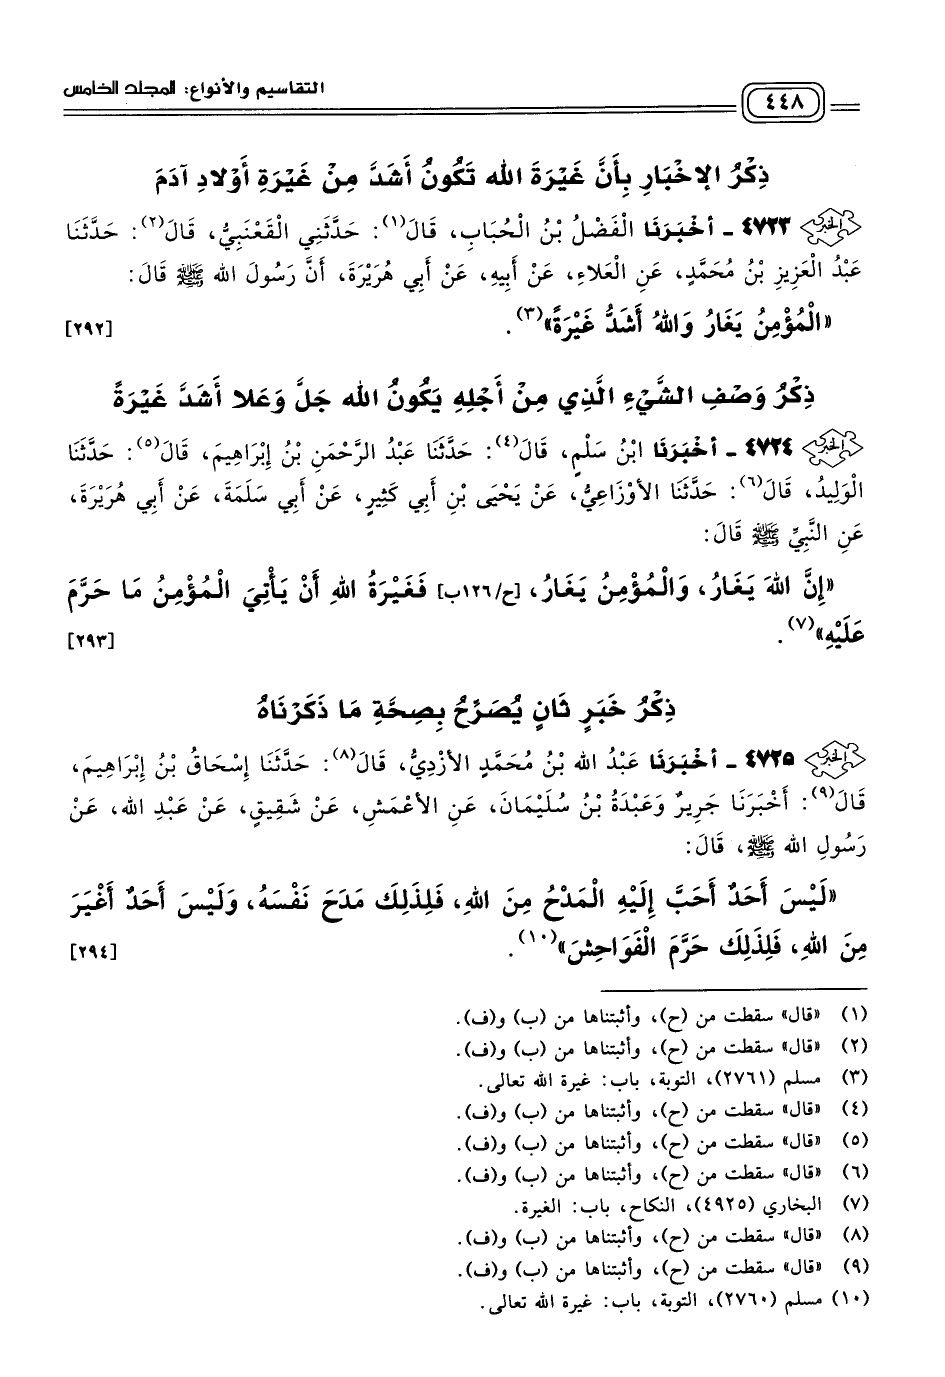 التقاسيم والأنواع: المجلد الخامس
٤٤٨
ذِكْرُ الإِخْبَارِ بِأَنَّ غَيْرَةَ الله تَكُونُ أَشَدَّ مِنْ غَيْرَةِ أَوْلادِ آدَمَ
الخبر ٤٧٢٣ - أَخْبَرَنَا الْفَضْلُ بْنُ الْحُبَابِ، قَالَ(١): حَدَّثَنِي الْقَعْنَبِيُّ، قَالَ(٢): حَدَّثَنَا
عَبْدُ الْعَزِيزِ بْنُ مُحَمَّدٍ، عَنِ الْعَلاءِ، عَنْ أَبِيهِ، عَنْ أَبِي هُرَيْرَةَ، أَنَّ رَسُولَ الله ﷺ قَالَ:
«الْمُؤْمِنُ يَغَارُ وَاللهُ أَشَدُّ غَيْرَةً»(٣). [٢٩٢]
ذِكْرُ وَصْفِ الشَّيْءِ الَّذِي مِنْ أَجْلِهِ يَكُونُ الله جَلَّ وَعَلا أَشَدَّ غَيْرَةً
الخبر ٤٧٢٤ - أَخْبَرَنَا ابْنُ سَلْمٍ، قَالَ(٤): حَدَّثَنَا عَبْدُ الرَّحْمَنِ بْنُ إِبْرَاهِيمَ، قَالَ(٥): حَدَّثَنَا
الْوَلِيدُ، قَالَ(٦): حَدَّثَنَا الأَوْزَاعِيُّ، عَنْ يَحْيَى بْنِ أَبِي كَثِيرٍ، عَنْ أَبِي سَلَمَةَ، عَنْ أَبِي هُرَيْرَةَ،
عَنِ النَّبِيِّ ﷺ قَالَ:
«إِنَّ اللهَ يَغَارُ، وَالْمُؤْمِنُ يَغَارُ، [ح/١٢٦ب] فَغَيْرَةُ اللهِ أَنْ يَأْتِيَ الْمُؤْمِنُ مَا حَرَّمَ
عَلَيْهِ»(٧). [٢٩٣]
ذِكْرُ خَبَرٍ ثَانٍ يُصَرِّحُ بِصِحَّةِ مَا ذَكَرْنَاهُ
الخبر ٤٧٢٥ - أَخْبَرَنَا عَبْدُ الله بْنُ مُحَمَّدٍ الأَزْدِيُّ، قَالَ(٨): حَدَّثَنَا إِسْحَاقُ بْنُ إِبْرَاهِيمَ،
قَالَ(٩): أَخْبَرَنَا جَرِيرٌ وَعَبْدَةُ بْنُ سُلَيْمَانَ، عَنِ الأَعْمَشِ، عَنْ شَقِيقٍ، عَنْ عَبْدِ الله، عَنْ
رَسُولِ الله ﷺ، قَالَ:
«لَيْسَ أَحَدٌ أَحَبَّ إِلَيْهِ الْمَدْحُ مِنَ اللهِ، فَلِذَلِكَ مَدَحَ نَفْسَهُ، وَلَيْسَ أَحَدٌ أَغْيَرَ
مِنَ اللهِ، فَلِذَلِكَ حَرَّمَ الْفَوَاحِشَ»(١٠). [٢٩٤]
(١) «قال» سقطت من (ح)، وأثبتناها من (ب) و(ف).
(٢) «قال» سقطت من (ح)، وأثبتناها من (ب) و(ف).
(٣) مسلم (٢٧٦١)، التوبة، باب: غيرة الله تعالى.
(٤) «قال» سقطت من (ح)، وأثبتناها من (ب) و(ف).
(٥) «قال» سقطت من (ح)، وأثبتناها من (ب) و(ف).
(٦) «قال» سقطت من (ح)، وأثبتناها من (ب) و(ف).
(٧) البخاري (٤٩٢٥)، النكاح، باب: الغيرة.
(٨) «قال» سقطت من (ح)، وأثبتناها من (ب) و(ف).
(٩) «قال» سقطت من (ح)، وأثبتناها من (ب) و(ف).
(١٠) مسلم (٢٧٦٠)، التوبة، باب: غيرة الله تعالى.